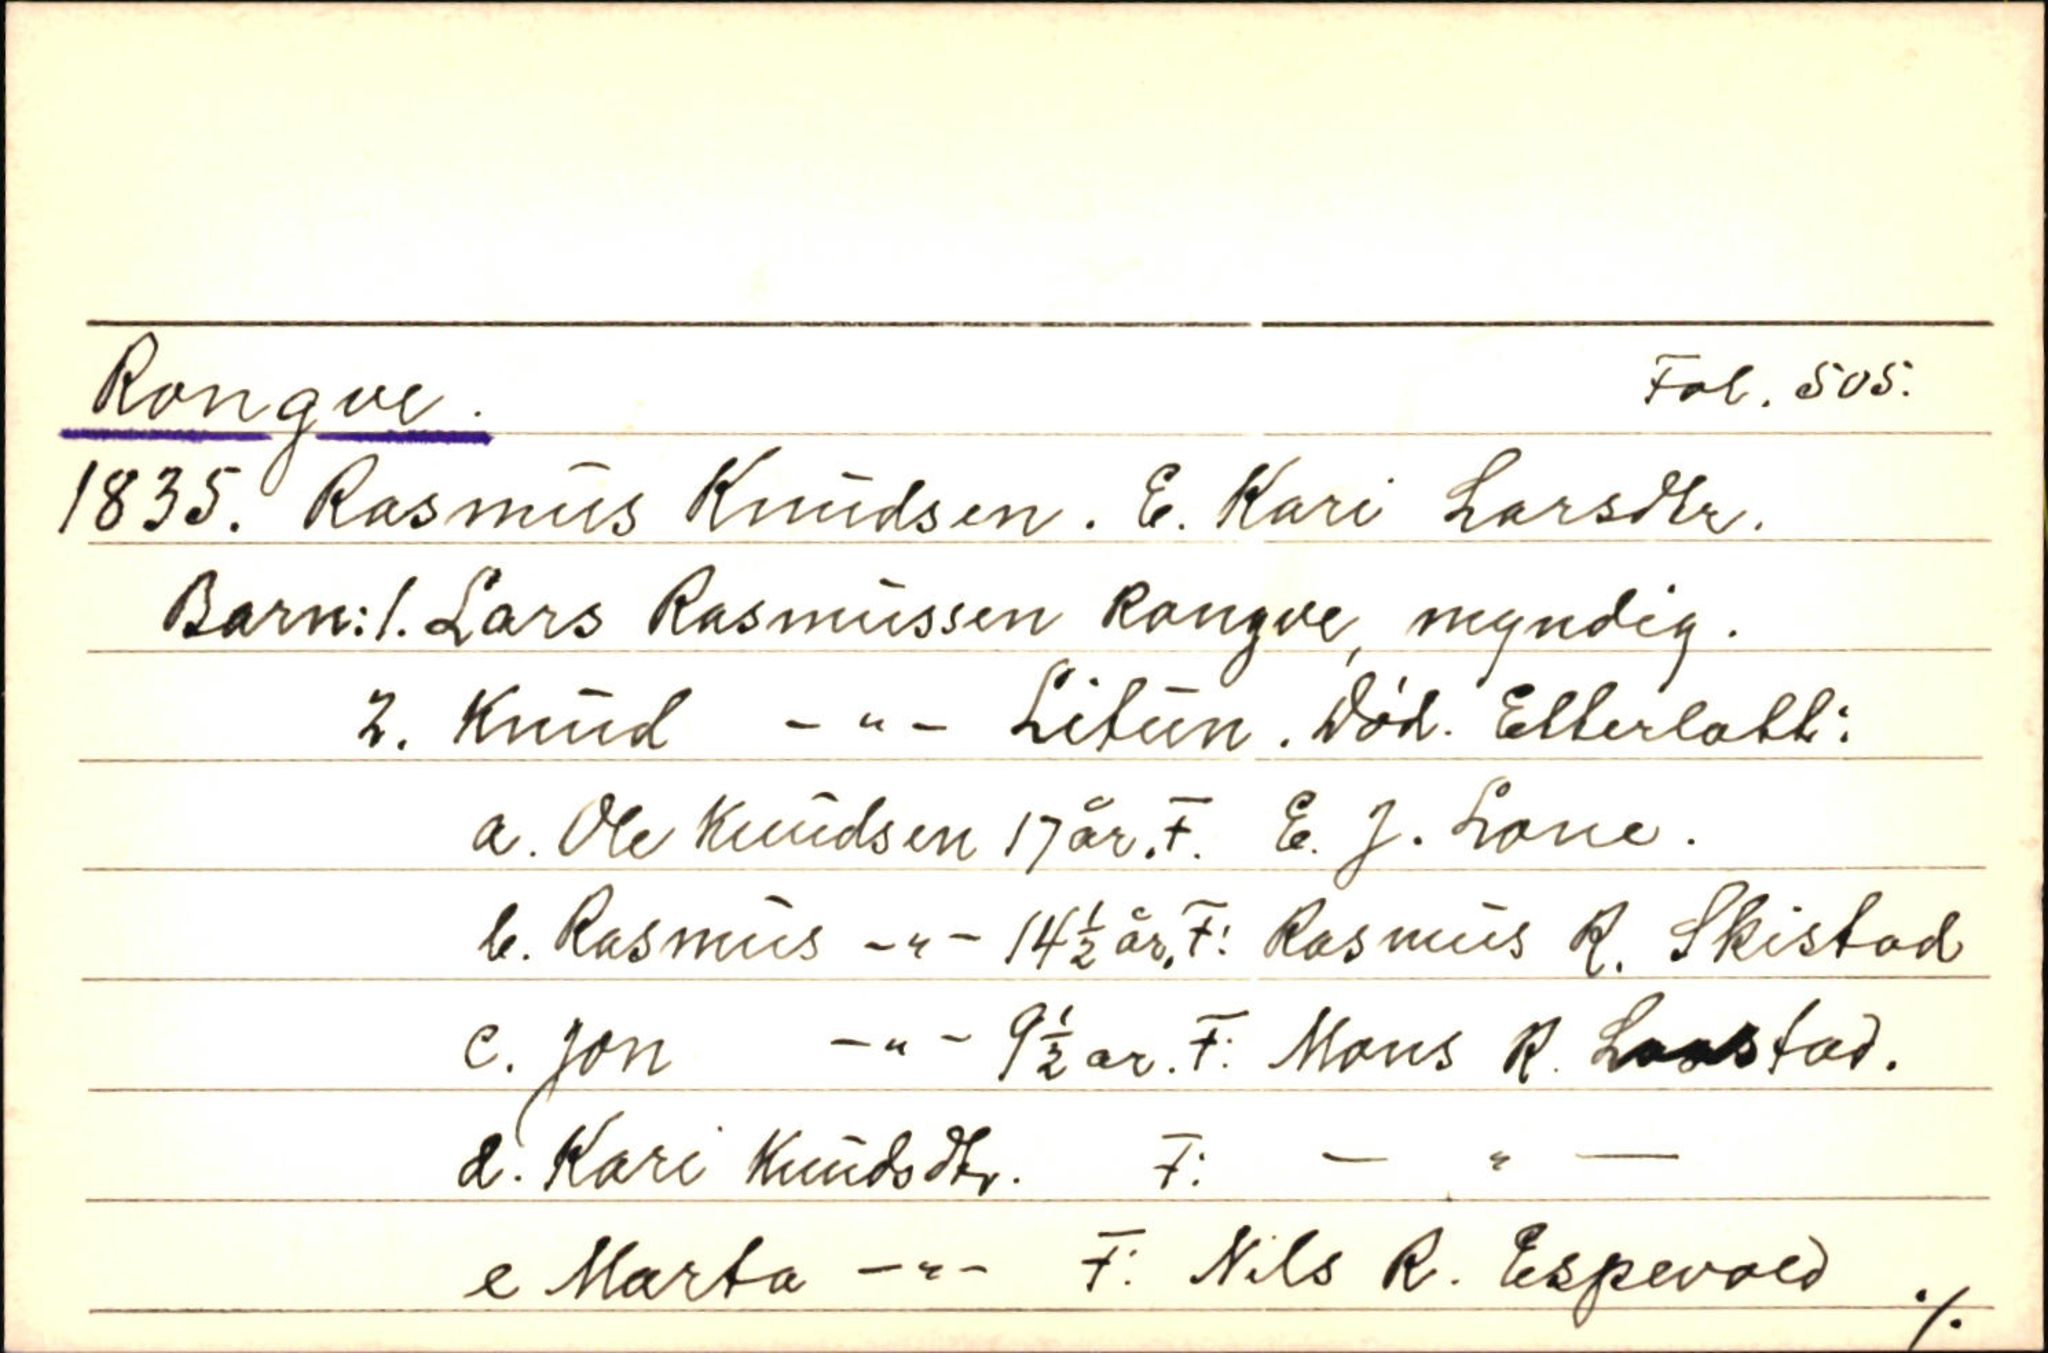 Rongve. Fol. 505.
1835. Rasmus Knudsen. E. Kari Larsdtr.
Barn: 1. Lars Rasmussen Rongve, myndig.
2. Knud -"- Litun. Død. Etterlatt:
a. Ole Knudsen 17 år. F. E. J. Lone.
b. Rasmus -"- 14½ år. F: Rasmus R. Skistad
c. Jon -"- 9½ ar. F: Mons R.
d. Kari Knudsdtr. F: - " -
e Marta -"- F: Nils R. Espevold ./.